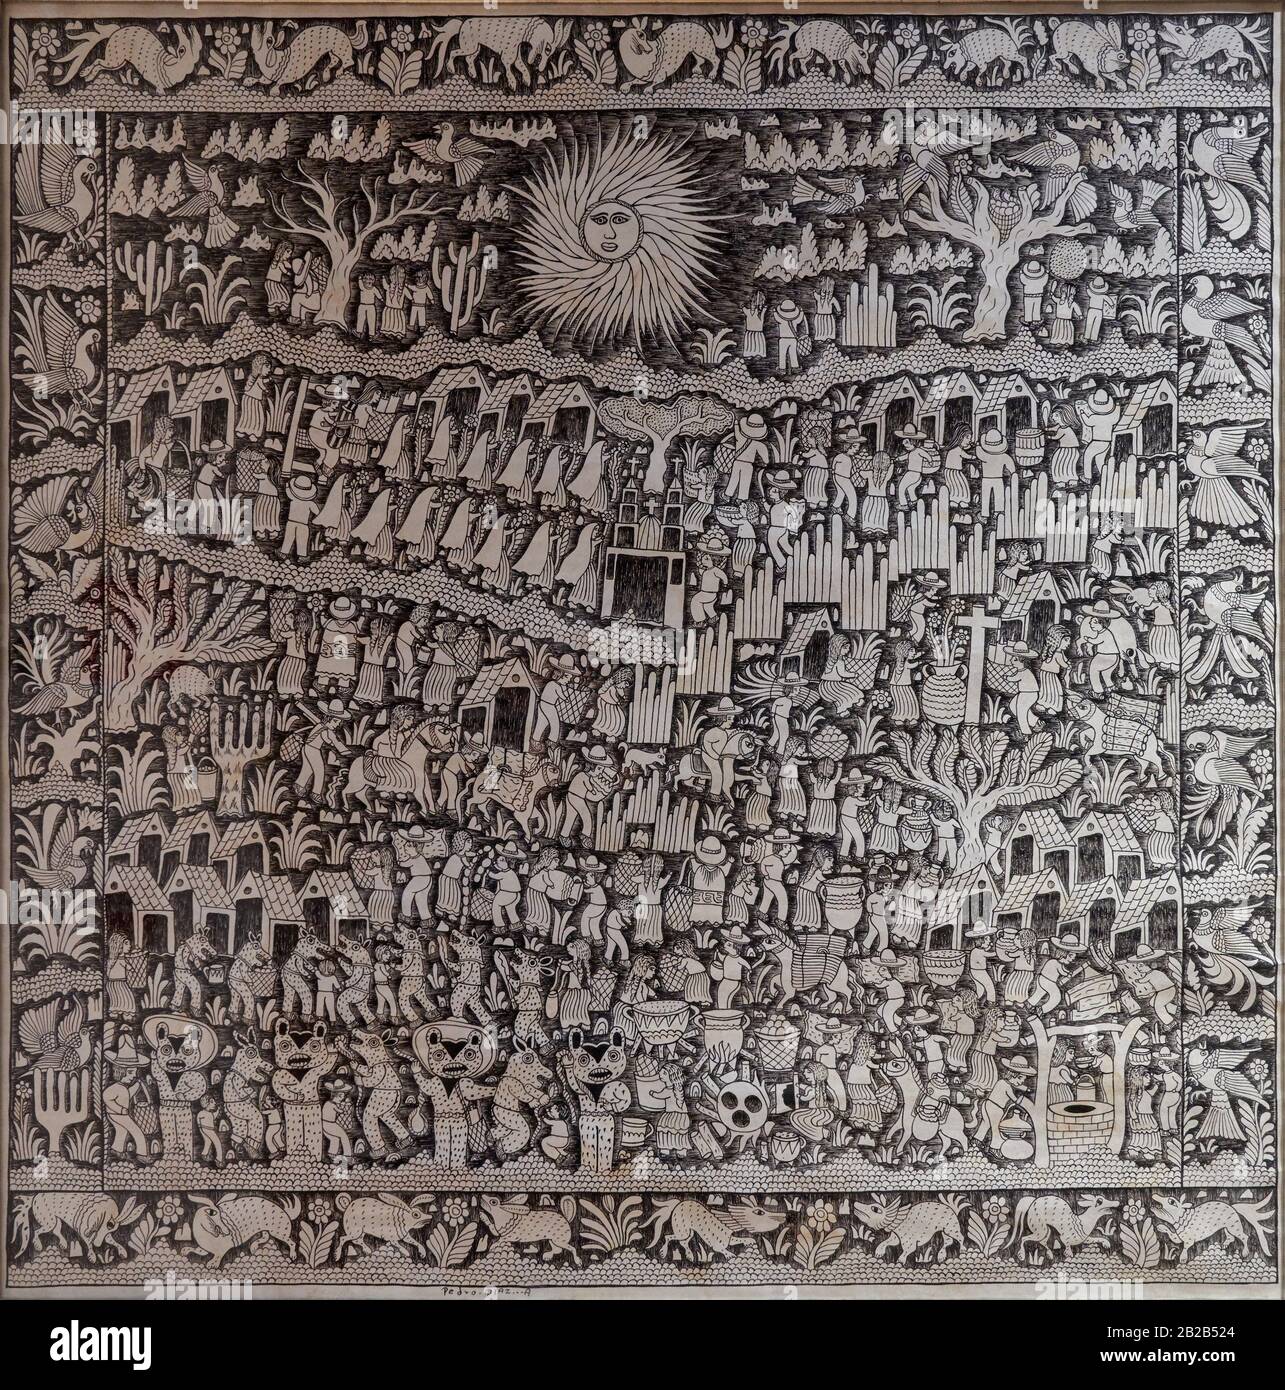 Pedro. DIAZ...A
alamy
Image ID: 2B2B524
www.alamy.com